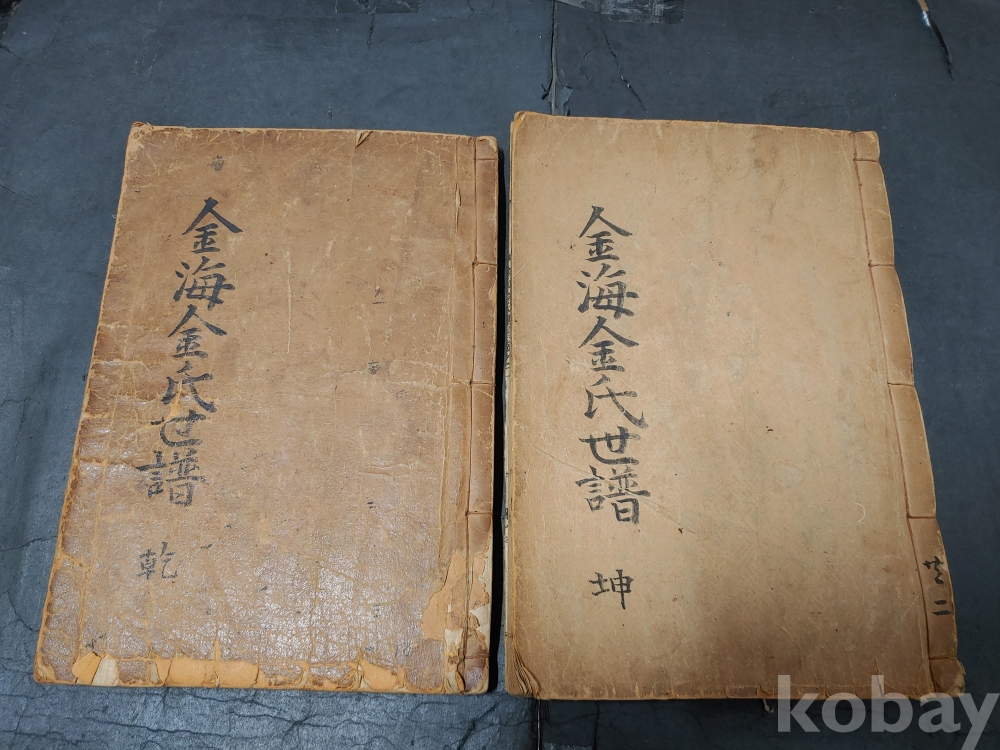 金海金氏世譜
乾
金海金氏世譜
坤
共二
kobay